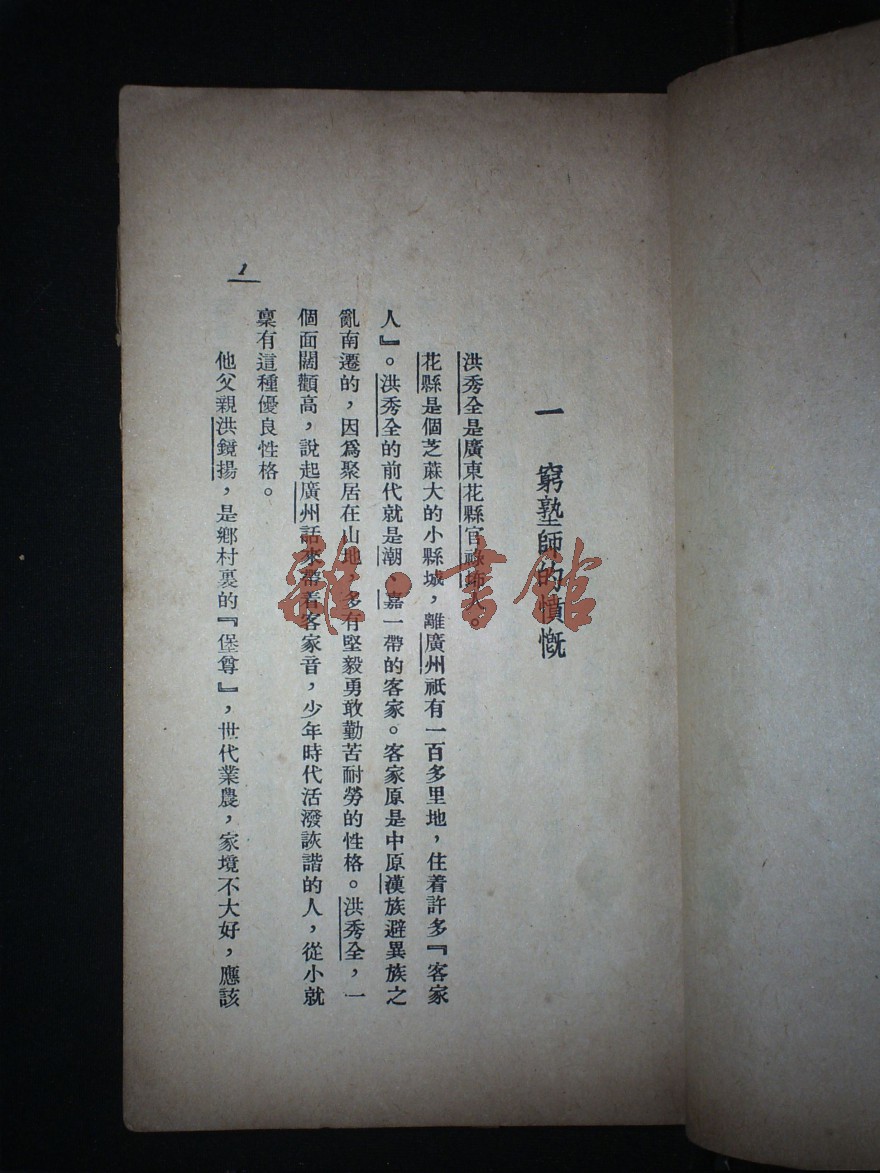 一　窮塾師的憤慨
洪秀全是廣東花縣官祿㘵人。
花縣是個芝蔴大的小縣城，離廣州祇有一百多里地，住着許多『客家
人』。洪秀全的前代就是潮　嘉一帶的客家。客家原是中原漢族避異族之
亂南遷的，因爲聚居在山地　多有堅毅勇敢勤苦耐勞的性格。洪秀全，一
個面闊顴高，說起廣州話來帶着客家音，少年時代活潑詼諧的人，從小就
稟有這種優良性格。
他父親洪鏡揚，是鄉村裏的『堡尊』，世代業農，家境不大好，應該
1
雜·書館